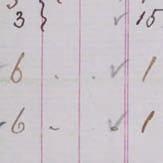 3 } ✓ 15
6 . . ✓ 1
6 . . 1